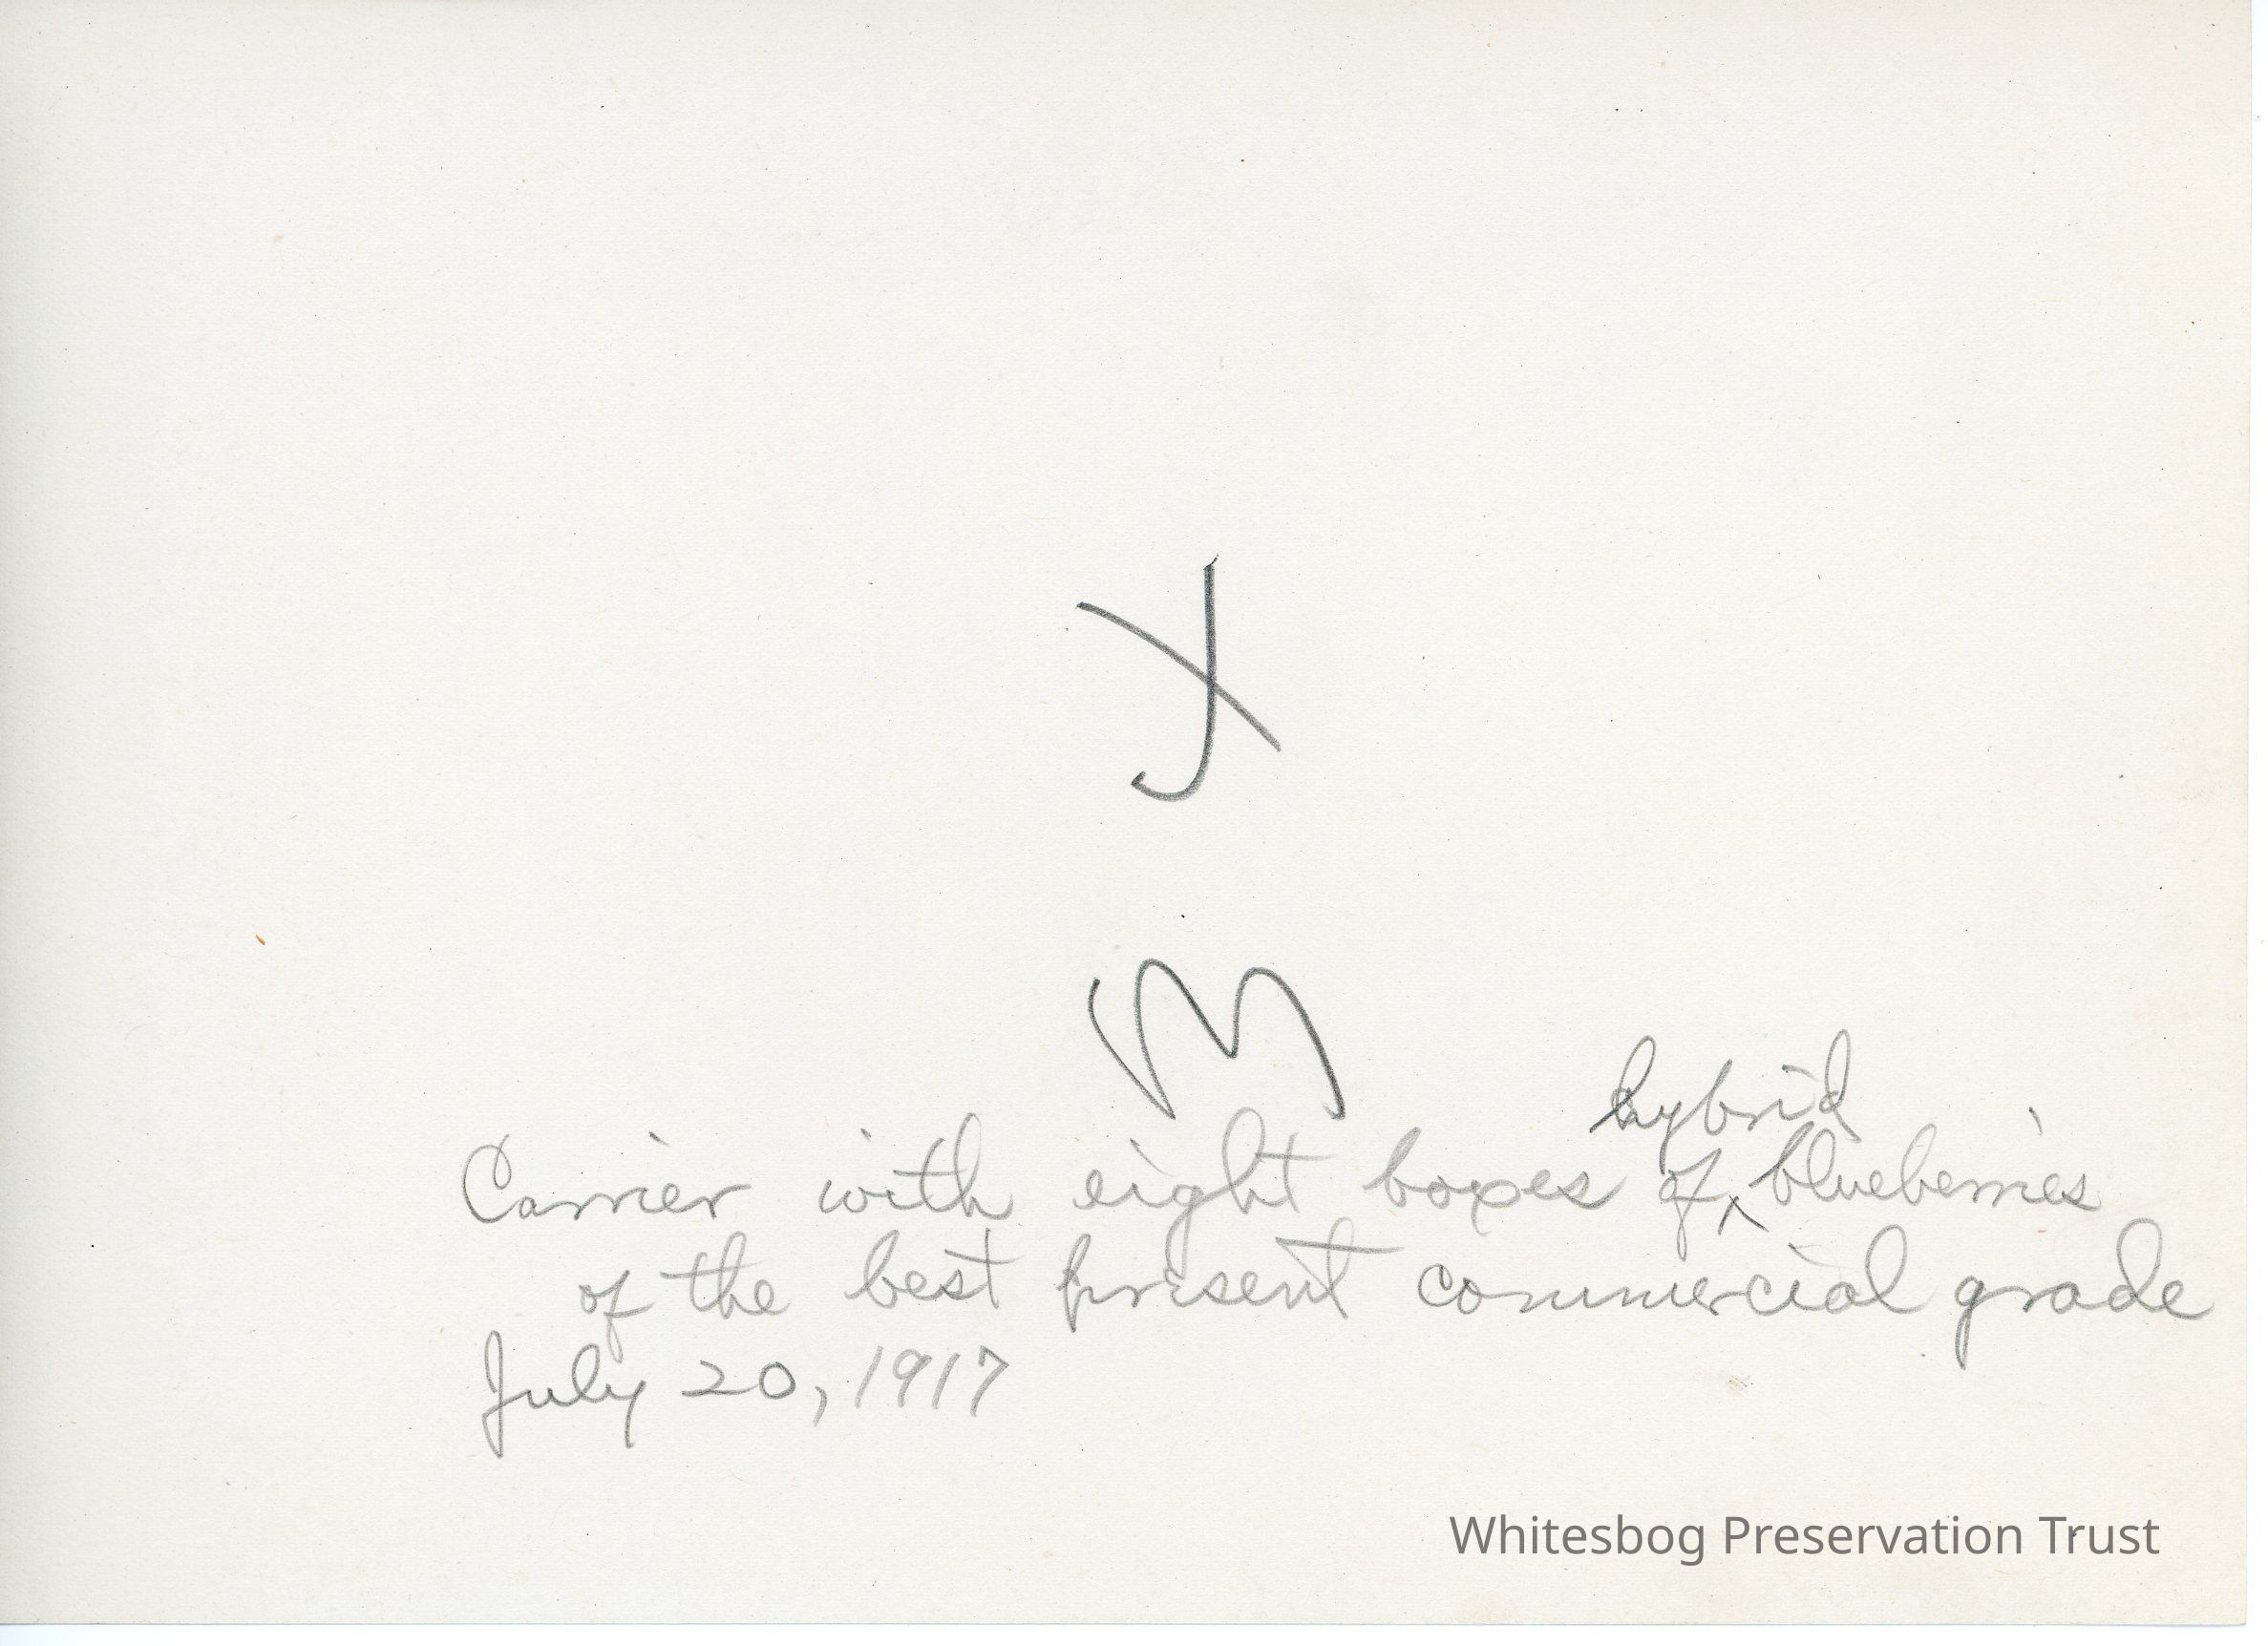 X
M
hybrid
Carrier with eight boxes of ^ blueberries
of the best present commercial grade
July 20, 1917
Whitesbog Preservation Trust